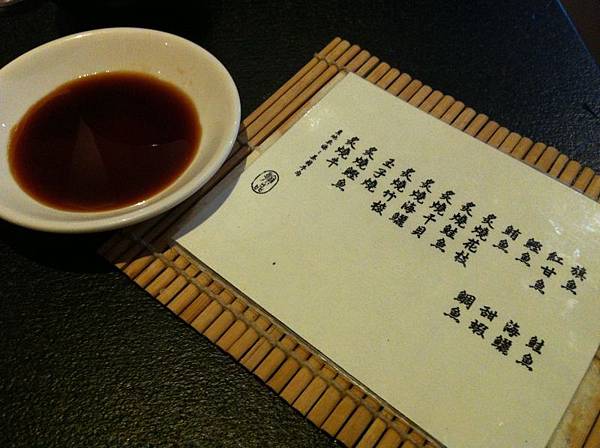 旗魚
紅甘魚
鰹魚
鮪魚
炙燒花枝
炙燒鮭魚
炙燒干貝
炙燒海鱺
玉子燒竹捲
炙燒鰹魚
炙燒牛
鮭魚
海鱺
甜蝦
鯛魚